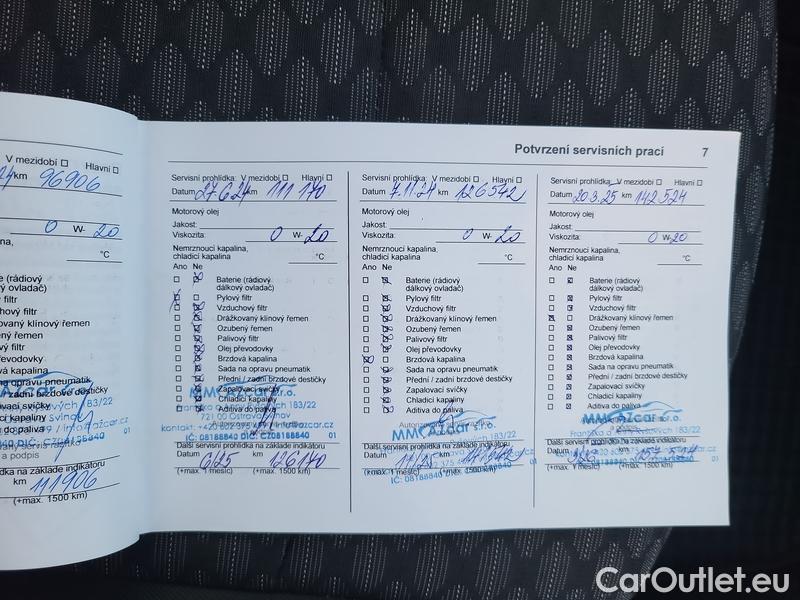 Potvrzení servisních prací 7
V mezidobí Hlavní
24 km 96906
0 W- 20
ina,
°C
e (rádiový
ový ovladač)
ý filtr
ový filtr
ovaný klínový řemen
ený řemen
ý filtr
řevodovky
vá kapalina
na opravu pneumatik
/ zadní brzdové destičky
ovací svíčky
í kapaliny
do paliva
a podpis
lídka na základě indikátoru
km 111906
(+max. 1500 km)
Servisní prohlídka: V mezidobí Hlavní
Datum 27.6.24 km 111 170
Motorový olej
Jakost:
Viskozita: 0 W- 20
Nemrznoucí kapalina,
chladicí kapalina °C
Ano Ne
Baterie (rádiový
dálkový ovladač)
Pylový filtr
Vzduchový filtr
Drážkovaný klínový řemen
Ozubený řemen
Palivový filtr
Olej převodovky
Brzdová kapalina
Sada na opravu pneumatik
Přední / zadní brzdové destičky
Zapalovací svíčky
Chladicí kapaliny
Aditiva do paliva
MMC AZcar s.r.o.
IČ: 08188840 DIČ: CZ08188840 01
Další servisní prohlídka na základě indikátoru
Datum 6/25 km 126170
(+max. 1 měsíc) (+max. 1500 km)
Servisní prohlídka: V mezidobí Hlavní
Datum 7.11.24 km 126542
Motorový olej
Jakost:
Viskozita: 0 W- 20
Nemrznoucí kapalina,
chladicí kapalina °C
Ano Ne
Baterie (rádiový
dálkový ovladač)
Pylový filtr
Vzduchový filtr
Drážkovaný klínový řemen
Ozubený řemen
Palivový filtr
Olej převodovky
Brzdová kapalina
Sada na opravu pneumatik
Přední / zadní brzdové destičky
Zapalovací svíčky
Chladicí kapaliny
Aditiva do paliva
MMC AZcar s.r.o.
Další servisní prohlídka na základě indikátoru
Datum km
(+max. 1 měsíc) (+max. 1500 km)
IČ: 08188840 01
Servisní prohlídka: V mezidobí Hlavní
Datum 20.3.25 km 142 524
Motorový olej
Jakost:
Viskozita: 0 W- 20
Nemrznoucí kapalina,
chladicí kapalina °C
Ano Ne
Baterie (rádiový
dálkový ovladač)
Pylový filtr
Vzduchový filtr
Drážkovaný klínový řemen
Ozubený řemen
Palivový filtr
Olej převodovky
Brzdová kapalina
Sada na opravu pneumatik
Přední / zadní brzdové destičky
Zapalovací svíčky
Chladicí kapaliny
Aditiva do paliva
MMC AZcar s.r.o.
Další servisní prohlídka na základě indikátoru
Datum km
(+max. 1 měsíc) (+max. 1500 km)
CarOutlet.eu